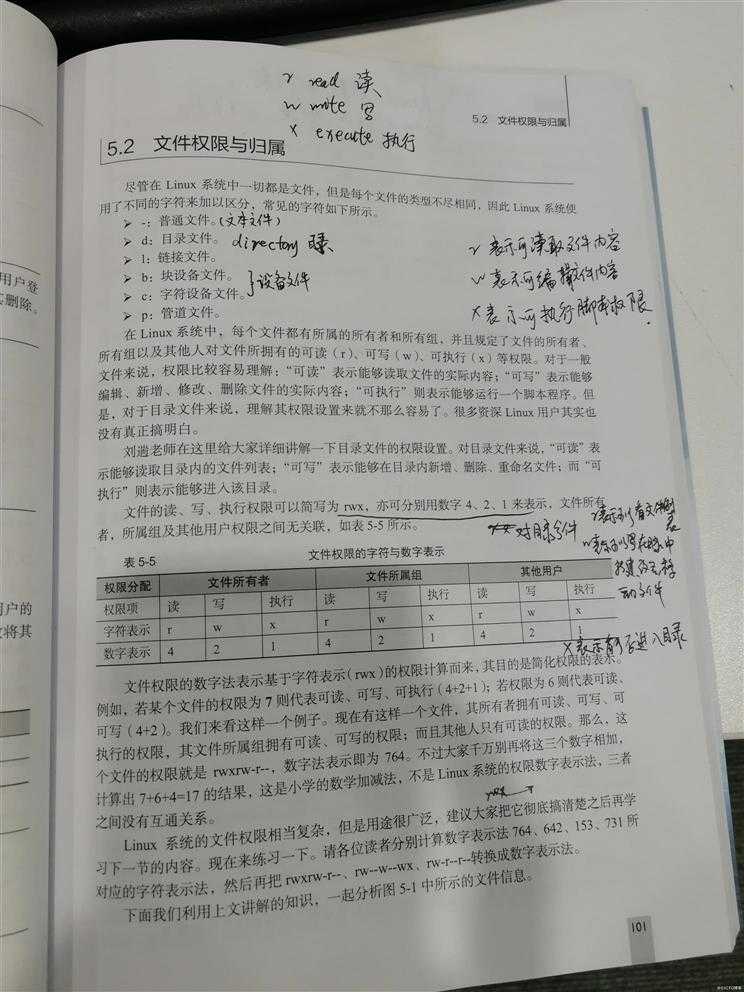 r read 读
w write 写
x execute 执行
5.2 文件权限与归属
5.2 文件权限与归属
尽管在 Linux 系统中一切都是文件，但是每个文件的类型不尽相同，因此 Linux 系统使
用了不同的字符来加以区分，常见的字符如下所示。
➢ -：普通文件。(文本文件)
➢ d：目录文件。 directory 目录
➢ l：链接文件。
➢ b：块设备文件。
}设备文件
➢ c：字符设备文件。
➢ p：管道文件。
r 表示可读取文件内容
w 表示可编辑文件内容
x 表示可执行脚本权限
在 Linux 系统中，每个文件都有所属的所有者和所有组，并且规定了文件的所有者、
所有组以及其他人对文件所拥有的可读（r）、可写（w）、可执行（x）等权限。对于一般
文件来说，权限比较容易理解：“可读”表示能够读取文件的实际内容；“可写”表示能够
编辑、新增、修改、删除文件的实际内容；“可执行”则表示能够运行一个脚本程序。但
是，对于目录文件来说，理解其权限设置来就不那么容易了。很多资深 Linux 用户其实也
没有真正搞明白。
刘遄老师在这里给大家详细讲解一下目录文件的权限设置。对目录文件来说，“可读”表
示能够读取目录内的文件列表；“可写”表示能够在目录内新增、删除、重命名文件；而“可
执行”则表示能够进入该目录。
文件的读、写、执行权限可以简写为 rwx，亦可分别用数字 4、2、1 来表示，文件所有
者，所属组及其他用户权限之间无关联，如表 5-5 所示。
对目录文件
表 5-5 文件权限的字符与数字表示
权限分配 文件所有者 文件所属组 其他用户
权限项 读 写 执行 读 写 执行 读 写 执行
字符表示 r w x r w x r w x
数字表示 4 2 1 4 2 1 4 2 1
x 表示能否进入目录
文件权限的数字法表示基于字符表示（rwx）的权限计算而来，其目的是简化权限的表示。
例如，若某个文件的权限为 7 则代表可读、可写、可执行（4+2+1）；若权限为 6 则代表可读、
可写（4+2）。我们来看这样一个例子。现在有这样一个文件，其所有者拥有可读、可写、可
执行的权限，其文件所属组拥有可读、可写的权限；而且其他人只有可读的权限。那么，这
个文件的权限就是 rwxrw-r--，数字法表示即为 764。不过大家千万别再将这三个数字相加，
计算出 7+6+4=17 的结果，这是小学的数学加减法，不是 Linux 系统的权限数字表示法，三者
之间没有互通关系。
Linux 系统的文件权限相当复杂，但是用途很广泛，建议大家把它彻底搞清楚之后再学
习下一节的内容。现在来练习一下。请各位读者分别计算数字表示法 764、642、153、731 所
对应的字符表示法，然后再把 rwxrw-r--、rw--w--wx、rw-r--r--转换成数字表示法。
下面我们利用上文讲解的知识，一起分析图 5-1 中所示的文件信息。
101
用户登
其删除。
用户的
将其
@51CTO博客